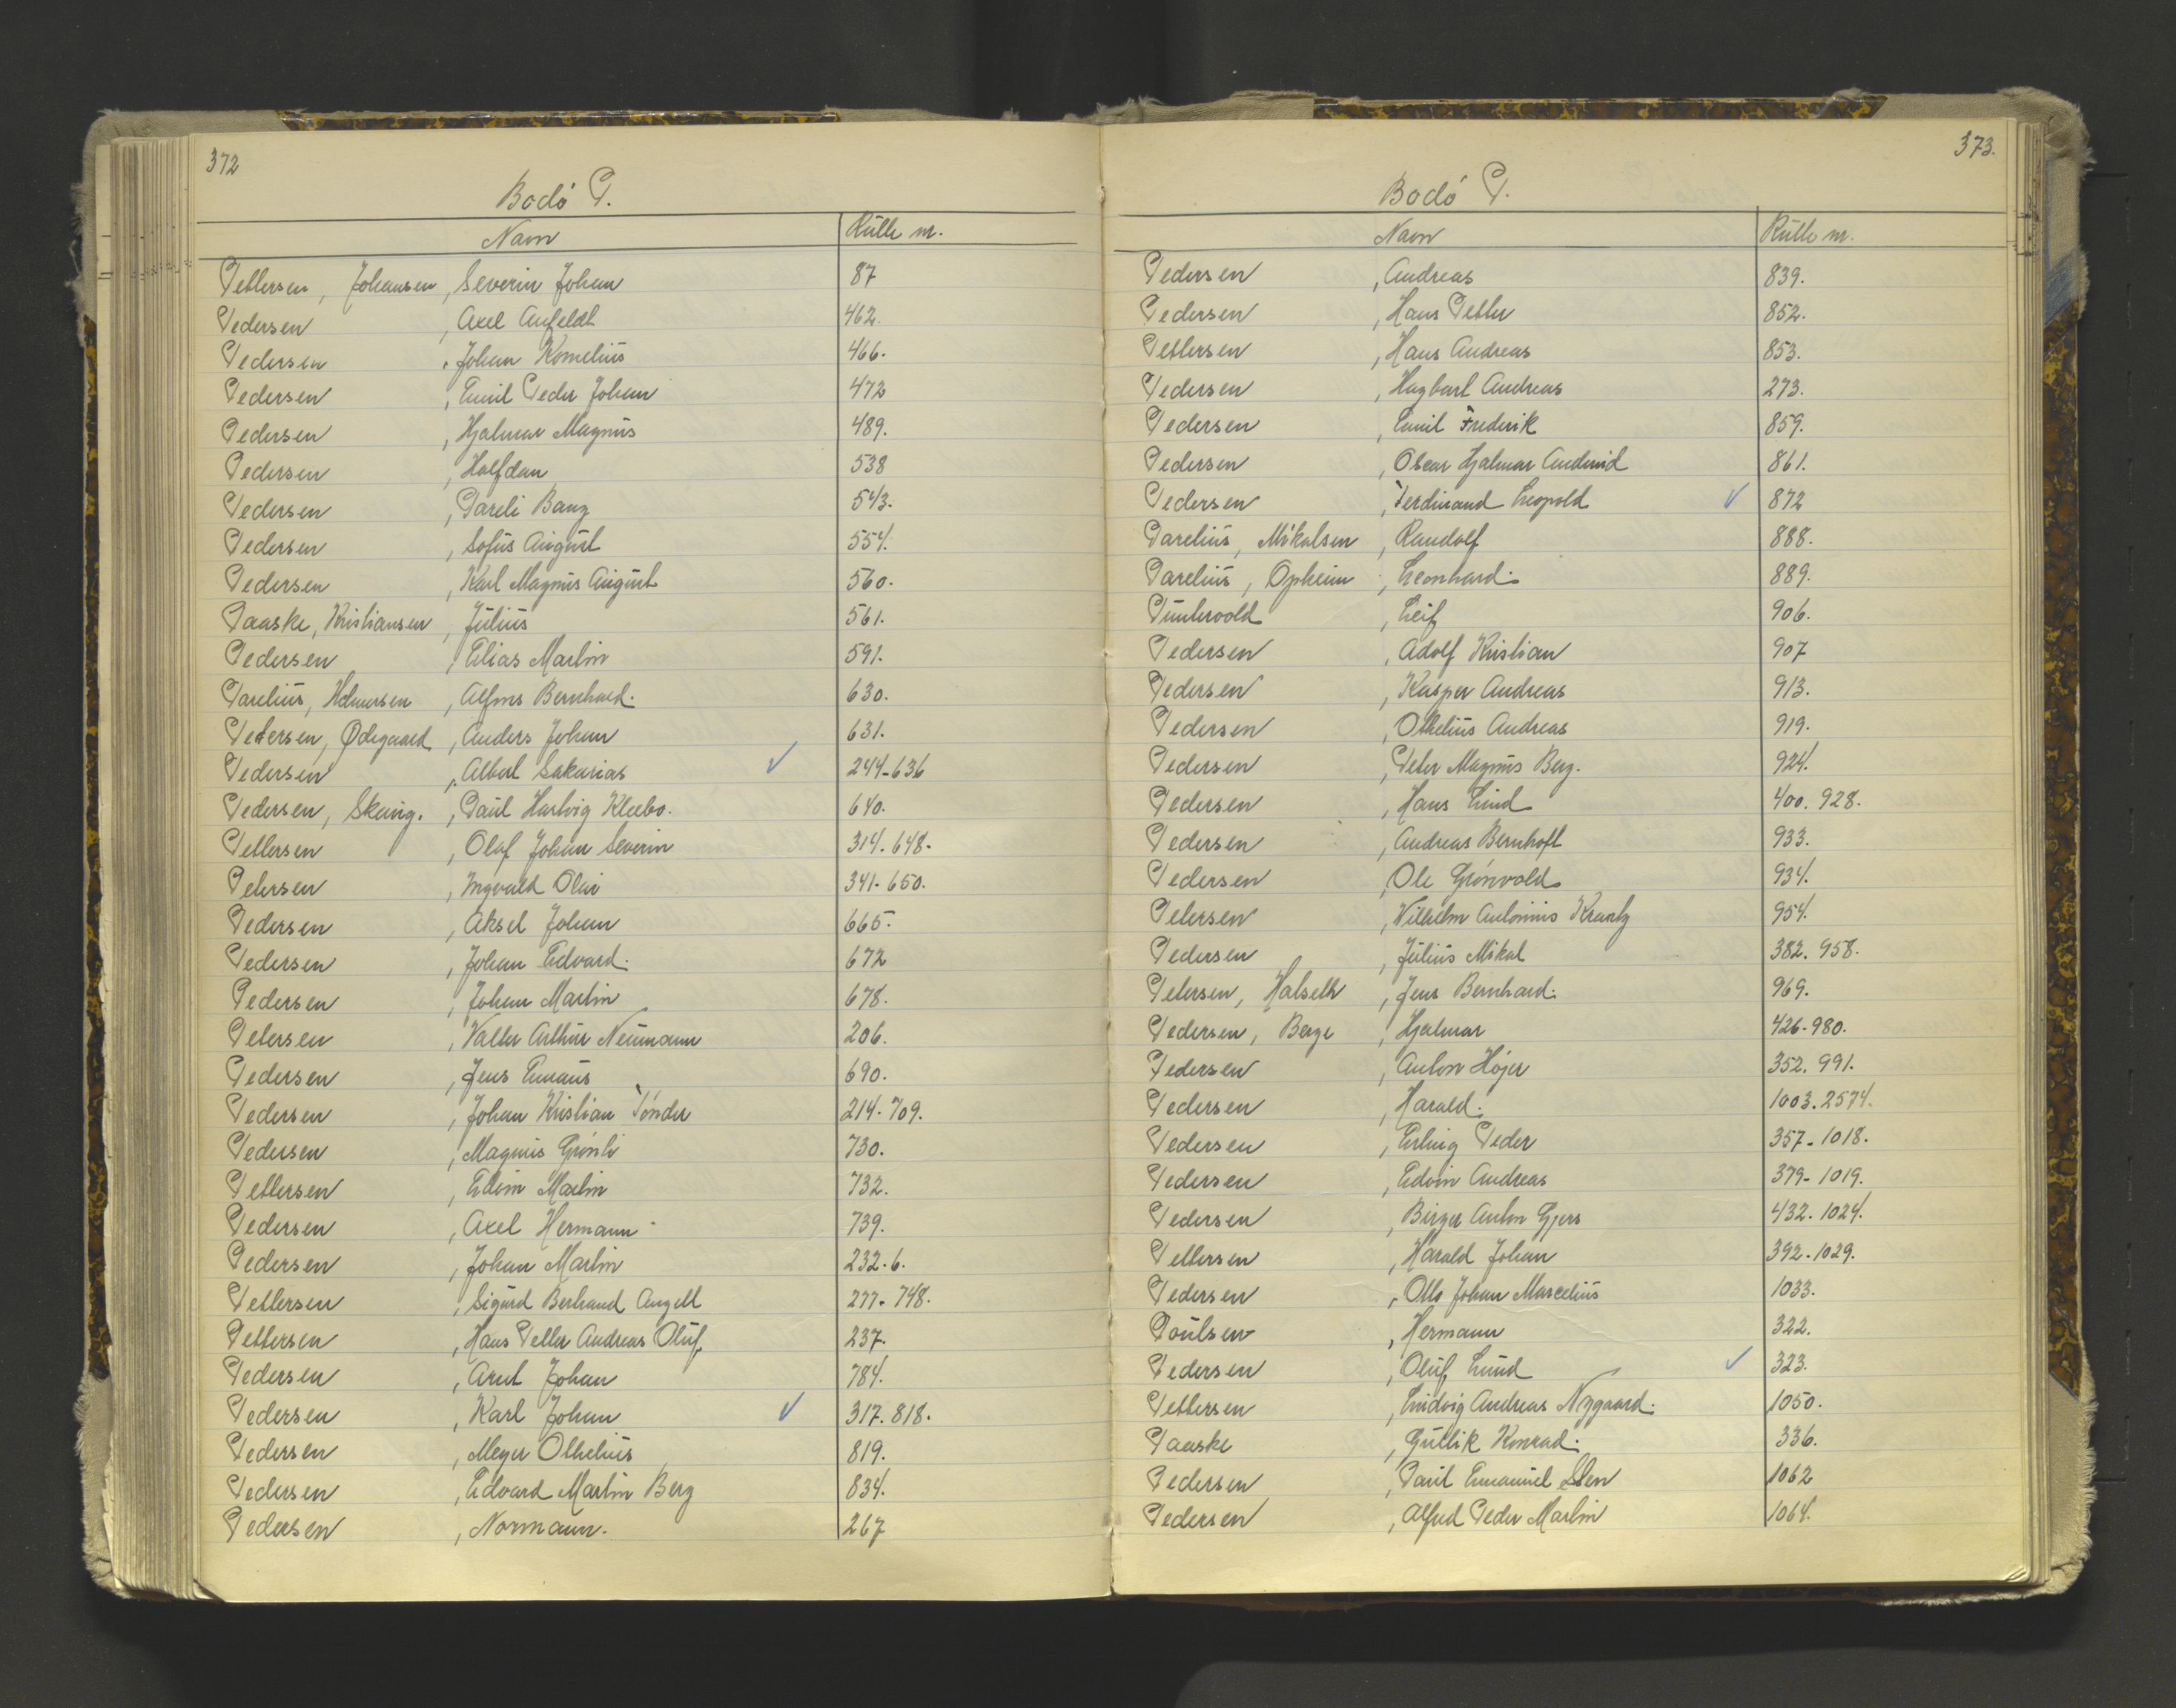 372
Bodó P.
Navn Rulle nr.
Pettersen, Johansen, Severin Johan 87
Pedersen, Axel Anfeldt 462.
Pedersen, Johan Kornelius 466.
Pedersen, Emil Peder Johan 472
Pedersen, Hjalmar Magnus 489.
Pedersen, Halfdan 538
Pedersen, Pareli Bang 543.
Pedersen, Sofus August 554.
Pedersen, Karl Magnus August 560.
Paaske, Kristiansen, Julius 561.
Pedersen, Elias Martin 591.
Parelius, Holmersen, Alfons Bernhard. 630.
Petersen, Ødegaard, Anders Johan 631.
Pedersen, Albert Sakarias ✓ 244-636
Pedersen, Skeing., Paul Hartvig Kleebo. 640.
Pettersen, Olaf Johan Severin 314. 648.
Petersen, Ingvald Olai 341. 650.
Pedersen, Aksel Johan 665.
Pedersen, Johan Edvard. 672
Pedersen, Johan Martin 678.
Petersen, Valter Arthur Neumann 206.
Pedersen, Jens Emaus 690.
Pedersen, Johan Kristian Tónder 214. 709.
Pedersen, Magnus Grónli 730.
Pettersen, Edvin Martin 732.
Pedersen, Axel Hermann 739.
Pedersen, Johan Martin 232. 6.
Pettersen, Sigurd Berhand Angell 277. 748.
Pettersen, Hans Petter Andreas Oluf 237.
Pedersen, Arnt Johan 784.
Pedersen, Karl Johan ✓ 317. 818.
Pedersen, Meyer Othelius 819.
Pedersen, Edvard Martin Berg 834.
Pedersen, Normann. 267
373.
Bodó P.
Navn Rulle nr.
Pedersen, Andreas 839.
Pedersen, Hans Petter 852.
Pettersen, Hans Andreas 853.
Pedersen, Hagbart Andreas 273.
Pedersen, Emil Frederik 859.
Pedersen, Oscar Hjalmar 861.
Pedersen, Ferdinand Leopold ✓ 872
Parelius, Mikalsen, Randolf 888.
Parelius, Opheim, Leonhard. 889.
Puntervold, Leif 906.
Pedersen, Adolf Kristian 907
Pedersen, Kasper Andreas 913.
Pedersen, Othelius Andreas 919.
Pedersen, Peter Magnus Berg. 924.
Pedersen, Hans Lind 400. 928.
Pedersen, Andreas Bernhoft 933.
Pedersen, Ole Grónvold 934.
Petersen, Wilhelm Antonius Krantz 954.
Pedersen, Julius Mikal 382. 958.
Petersen, Halseth, Jens Bernhard. 969.
Pedersen, Berge, Hjalmar 426-980.
Pedersen, Anton Højer 352. 991.
Pedersen, Harald. 1003. 2574.
Pedersen, Erling Peder 357-1018.
Pedersen, Edvin Andreas 379-1019.
Pedersen, Birger Anton Gjers 432. 1024.
Pettersen, Harald Johan 392-1029.
Pedersen, Otto Johan Marcelius 1033.
Poulsen, Hermann 322.
Pedersen, Oluf Lund ✓ 323.
Pettersen, Ludvig Andreas Nygaard. 1050.
Paaske, Gullik Konrad. 336.
Pedersen, Paul Emanuel Sten 1062
Pedersen, Alfred Peder Martin 1064.